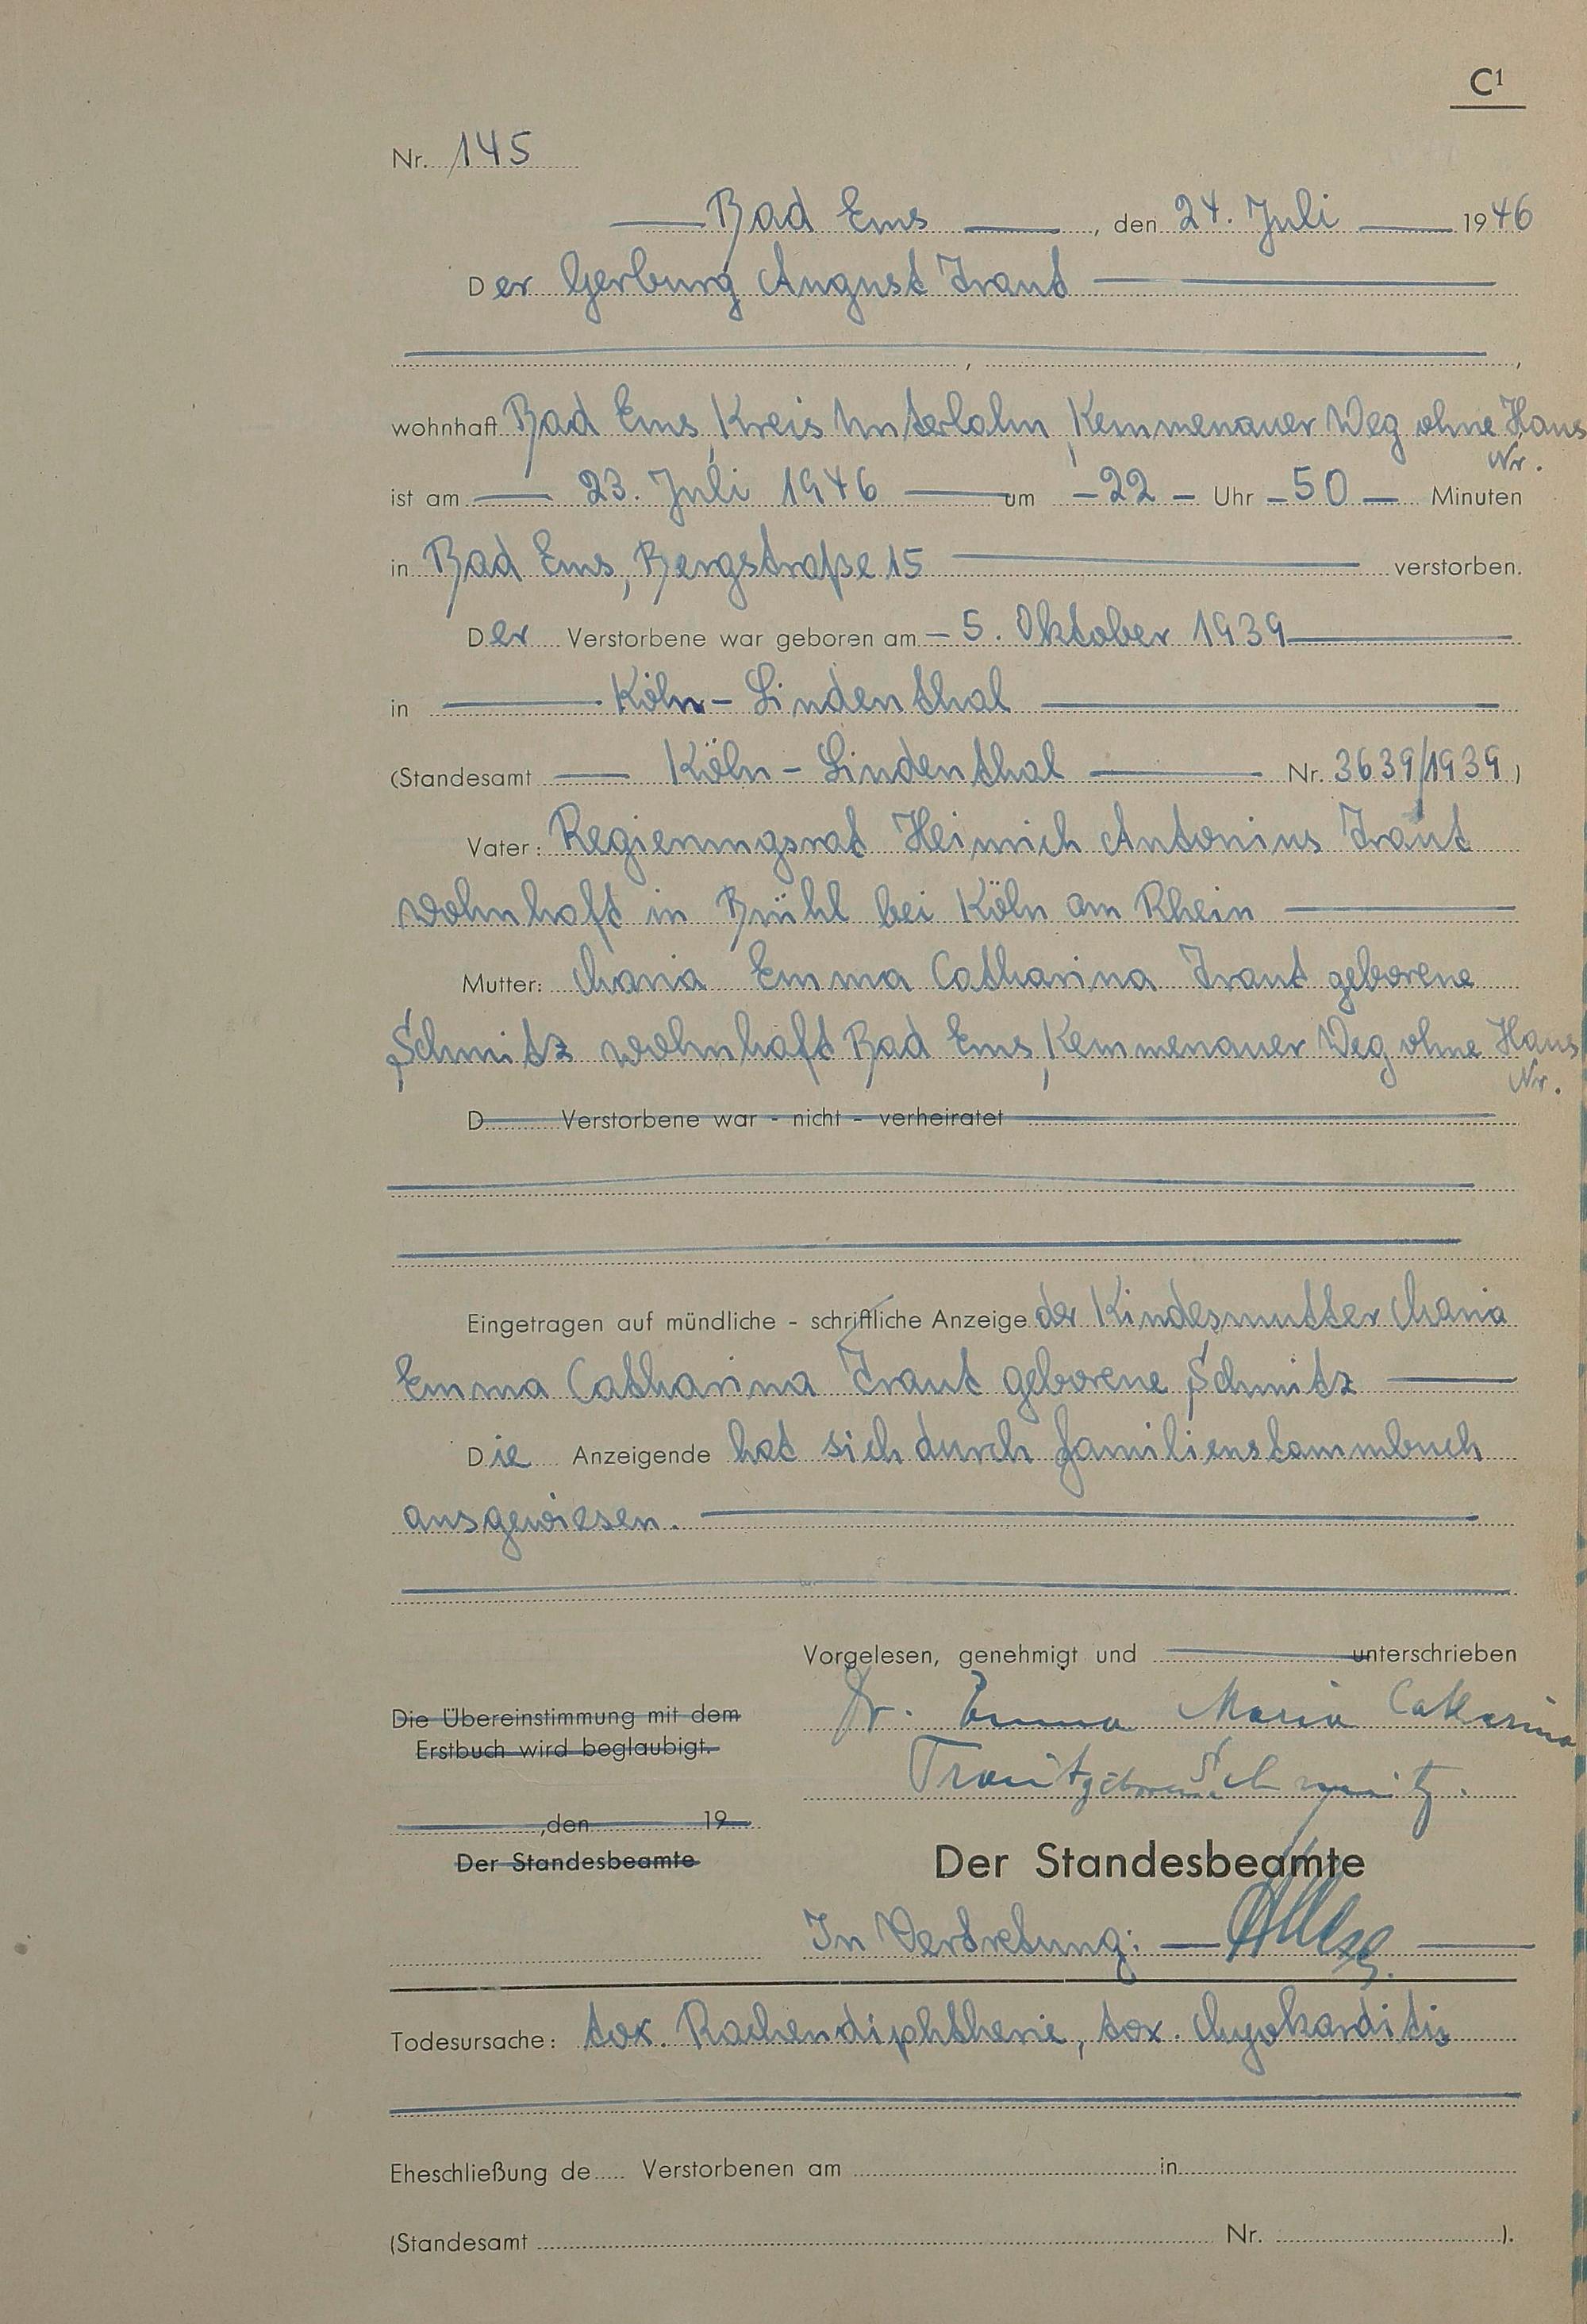 C¹
Nr. 145
Bad Ems, den 24. Juli 1946
Der Gerburg August Traut
wohnhaft Bad Ems, Kreis Unterlahn, Kemmenauer Weg ohne Haus
Nr.
ist am 23. Juli 1946 um -22- Uhr -50- Minuten
in Bad Ems, Bergstraße 15 verstorben.
Der Verstorbene war geboren am - 5. Oktober 1939
in Köln-Lindenthal
(Standesamt Köln-Lindenthal Nr. 3639/1939)
Vater: Regierungsrat Heinrich Antonius Traut
wohnhaft in Brühl bei Köln am Rhein
Mutter: Maria Emma Catharina Traut geborene
Schmitz wohnhaft Bad Ems, Kemmenauer Weg ohne Haus
Nr.
D Verstorbene war - nicht - verheiratet
Eingetragen auf mündliche - schriftliche Anzeige der Kindesmutter Maria
Emma Catharina Traut geborene Schmitz
Die Anzeigende hat sich durch Familienstammbuch
ausgewiesen.
Vorgelesen, genehmigt und unterschrieben
Die Übereinstimmung mit dem
Erstbuch wird beglaubigt.
Dr. Emma Maria Catharina
Traut geborene Schmitz.
, den 19
Der Standesbeamte
Der Standesbeamte
In Vertretung:
Todesursache: tox. Rachendiphtherie, tox. Myokarditis
Eheschließung de Verstorbenen am in
(Standesamt Nr. ).